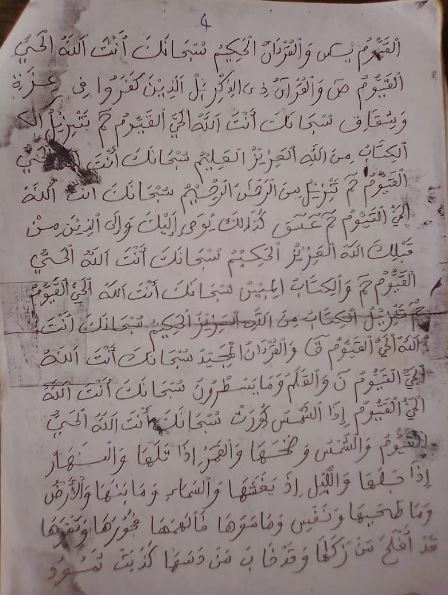 4
الْقَيُّومُ يس وَالْقُرْآنِ الْحَكِيمِ سُبْحَانَكَ أَنْتَ اللَّهُ الْحَيُّ
الْقَيُّومُ ص وَالْقُرْآنِ ذِي الذِّكْرِ بَلِ الَّذِينَ كَفَرُوا فِي عِزَّةٍ
وَشِقَاقٍ سُبْحَانَكَ أَنْتَ اللَّهُ الْحَيُّ الْقَيُّومُ حم تَنْزِيلُ الْكِ
الْكِتَابِ مِنَ اللَّهِ الْعَزِيزِ الْعَلِيمِ سُبْحَانَكَ أَنْتَ الْحَيُّ
الْقَيُّومُ حم تَنْزِيلٌ مِنَ الرَّحْمَنِ الرَّحِيمِ سُبْحَانَكَ أَنْتَ اللَّهُ
الْحَيُّ الْقَيُّومُ حم عسق كَذَلِكَ يُوحِي إِلَيْكَ وَإِلَى الَّذِينَ مِنْ
قَبْلِكَ اللَّهُ الْعَزِيزُ الْحَكِيمُ سُبْحَانَكَ أَنْتَ اللَّهُ الْحَيُّ
الْقَيُّومُ حم وَالْكِتَابِ الْمُبِينِ سُبْحَانَكَ أَنْتَ اللَّهُ الْحَيُّ الْقَيُّومُ
حم تَنْزِيلُ الْكِتَابِ مِنَ اللَّهِ الْعَزِيزِ الْحَكِيمِ سُبْحَانَكَ أَنْتَ
اللَّهُ الْحَيُّ الْقَيُّومُ ق وَالْقُرْآنِ الْمَجِيدِ سُبْحَانَكَ أَنْتَ اللَّهُ
الْحَيُّ الْقَيُّومُ ن وَالْقَلَمِ وَمَا يَسْطُرُونَ سُبْحَانَكَ أَنْتَ اللَّهُ
الْحَيُّ الْقَيُّومُ إِذَا الشَّمْسُ كُوِّرَتْ سُبْحَانَكَ أَنْتَ اللَّهُ الْحَيُّ
الْقَيُّومُ وَالشَّمْسِ وَضُحَيهَا وَالْقَمَرِ إِذَا تَلَيهَا وَالنَّهَارِ
إِذَا جَلَّيهَا وَاللَّيْلِ إِذَا يَغْشَيهَا وَالسَّمَاءِ وَمَا بَنَيهَا وَالْأَرْضِ
وَمَا طَحَيهَا وَنَفْسٍ وَمَا سَوَّيهَا فَأَلْهَمَهَا فُجُورَهَا وَتَقْوَيهَا
قَدْ أَفْلَحَ مَنْ زَكَّيهَا وَقَدْ خَابَ مَنْ دَسَّيهَا كَذَّبَتْ ثَمُودُ